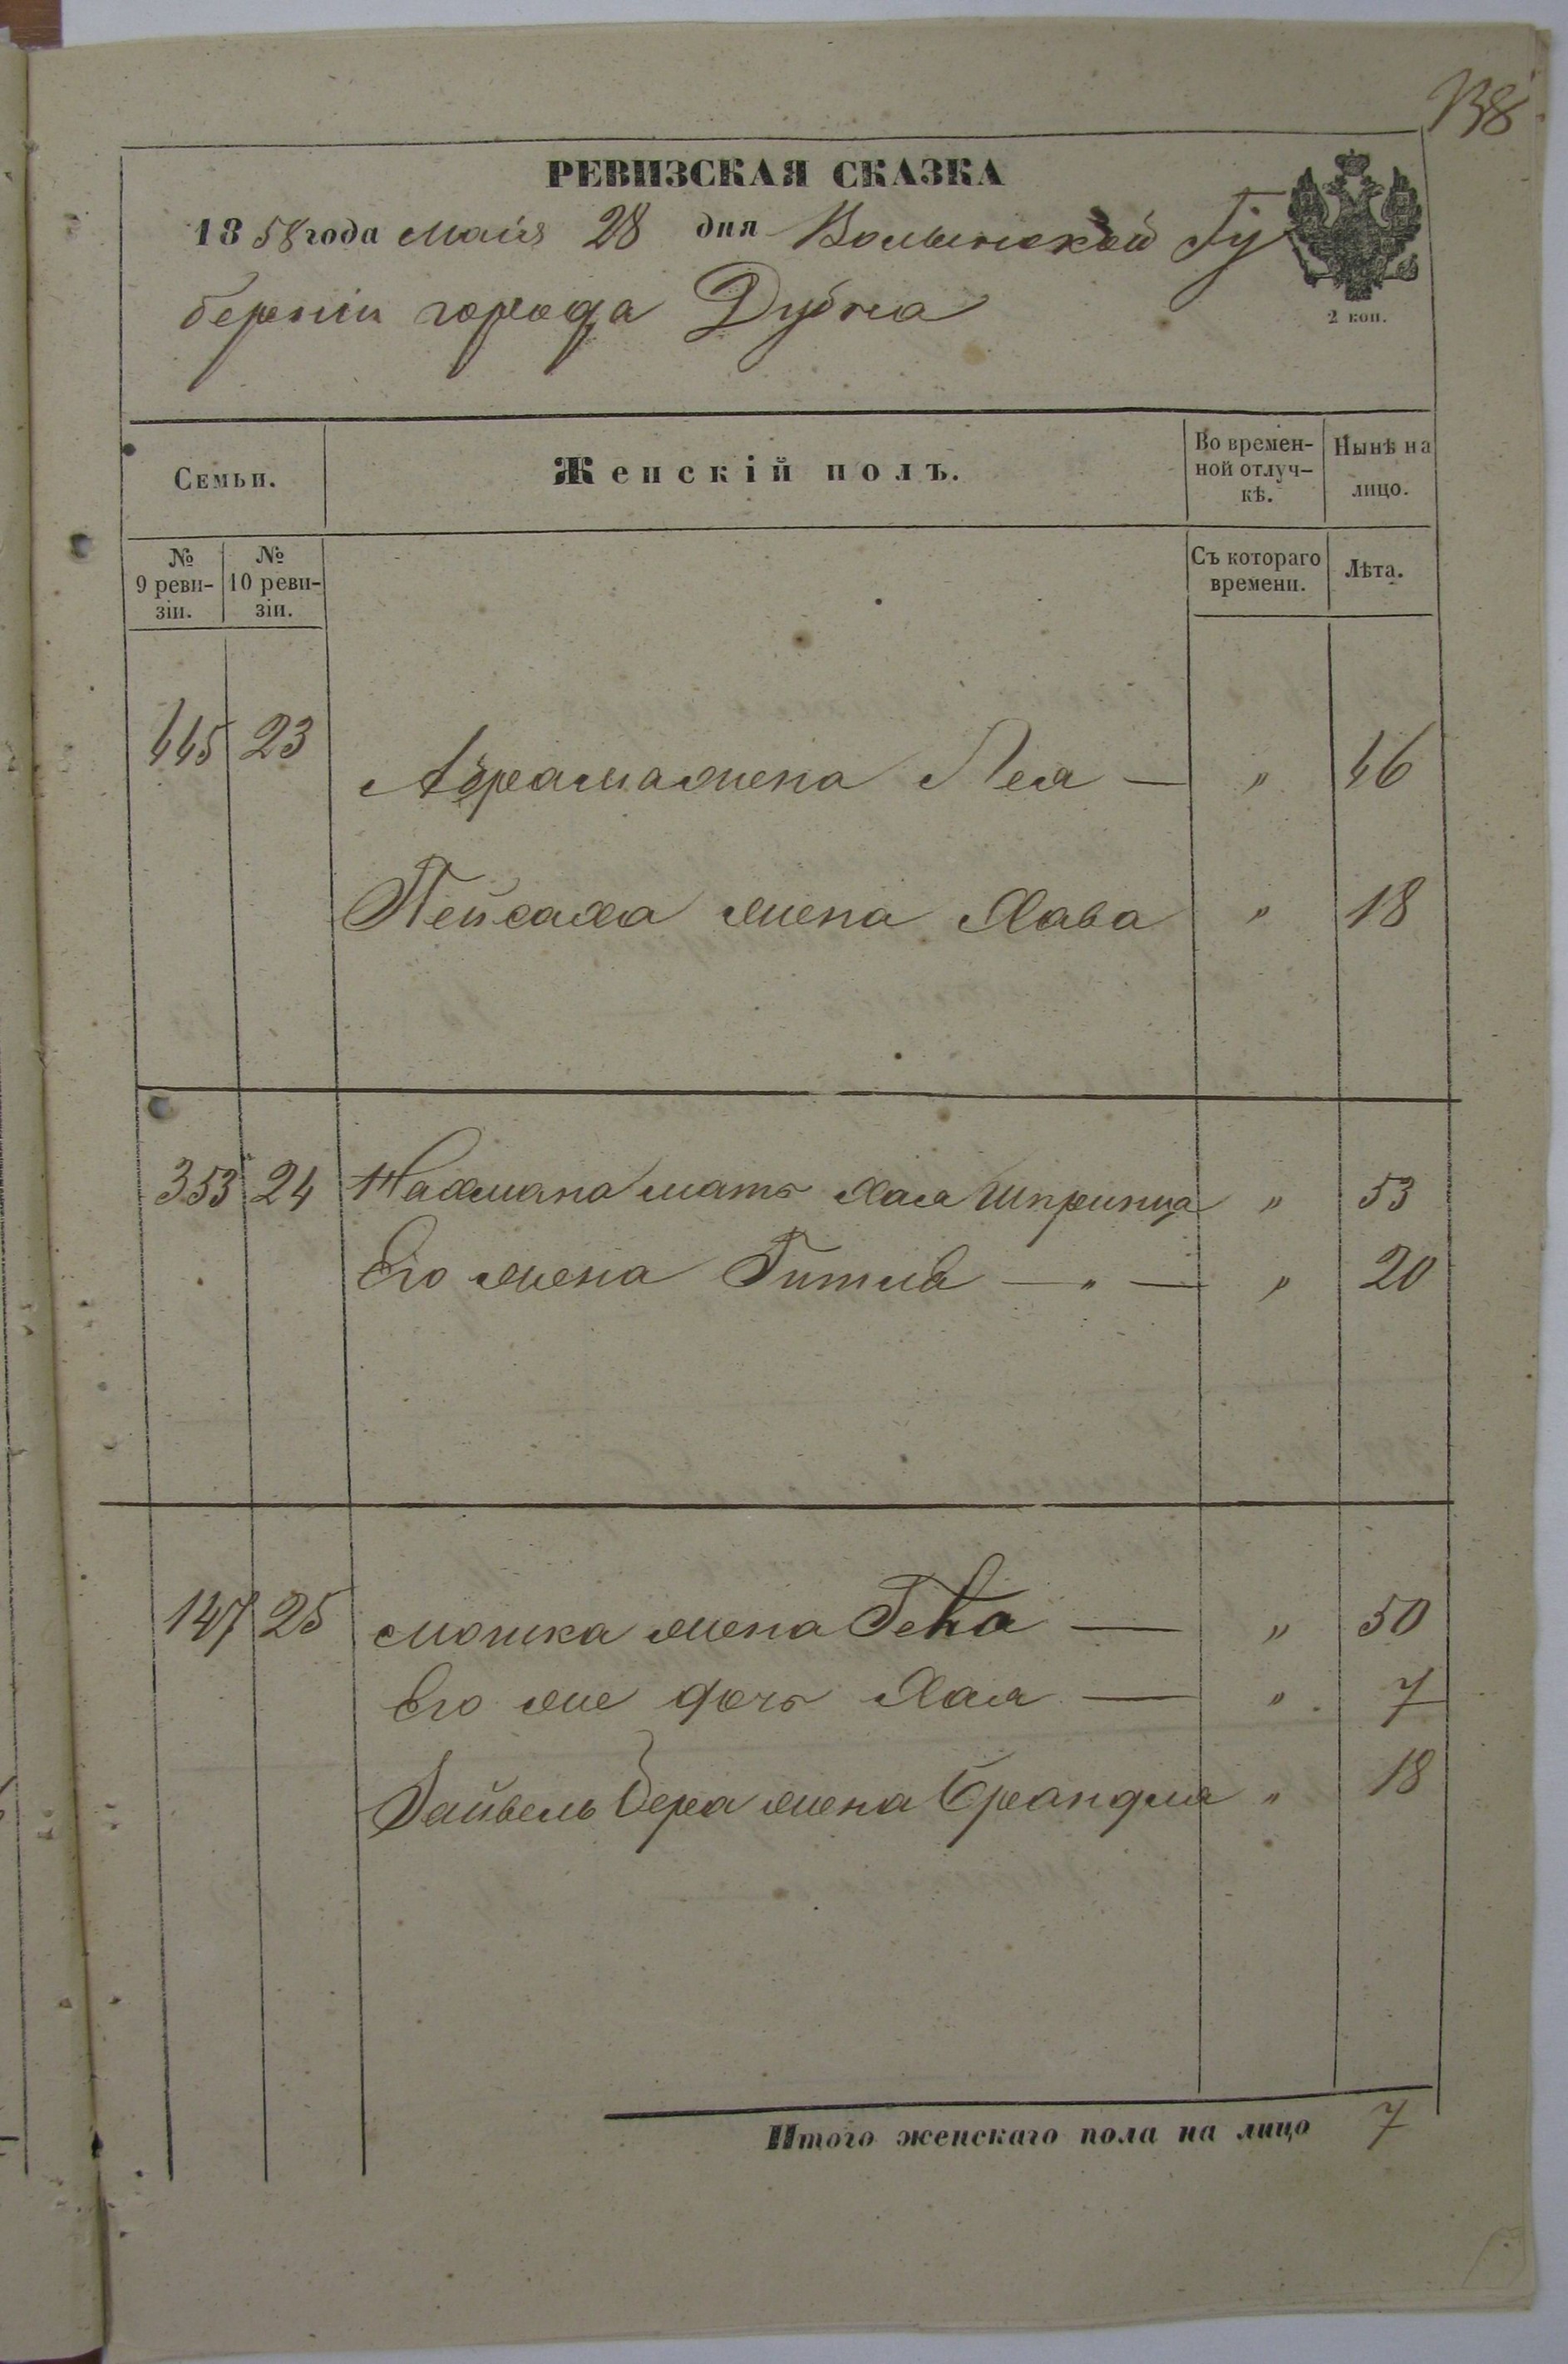 138
РЕВИЗСКАЯ СКАЗКА
1858 года Маія 28 дня Волынской Гу
берніи города Дубна
2 коп.
Семьи.
Женскій полъ.
Во времен-
ной отлуч-
кѣ.
Нынѣ на
лицо.
№
9 реви-
зіи.
№
10 реви-
зіи.
Съ котораго
времени.
Лѣта.
445 23 Абрама жена Лея — " 46
Пейсаха жена Хава " 18
353 24 Нахмана мать Хая Шпринца " 53
Его жена Гитля — " — " 20
147 25 Мошка жена — " 50
Его же дочь Хая — " 7
Файвель Бера жена Брандля " 18
Итого женскаго пола на лицо 7